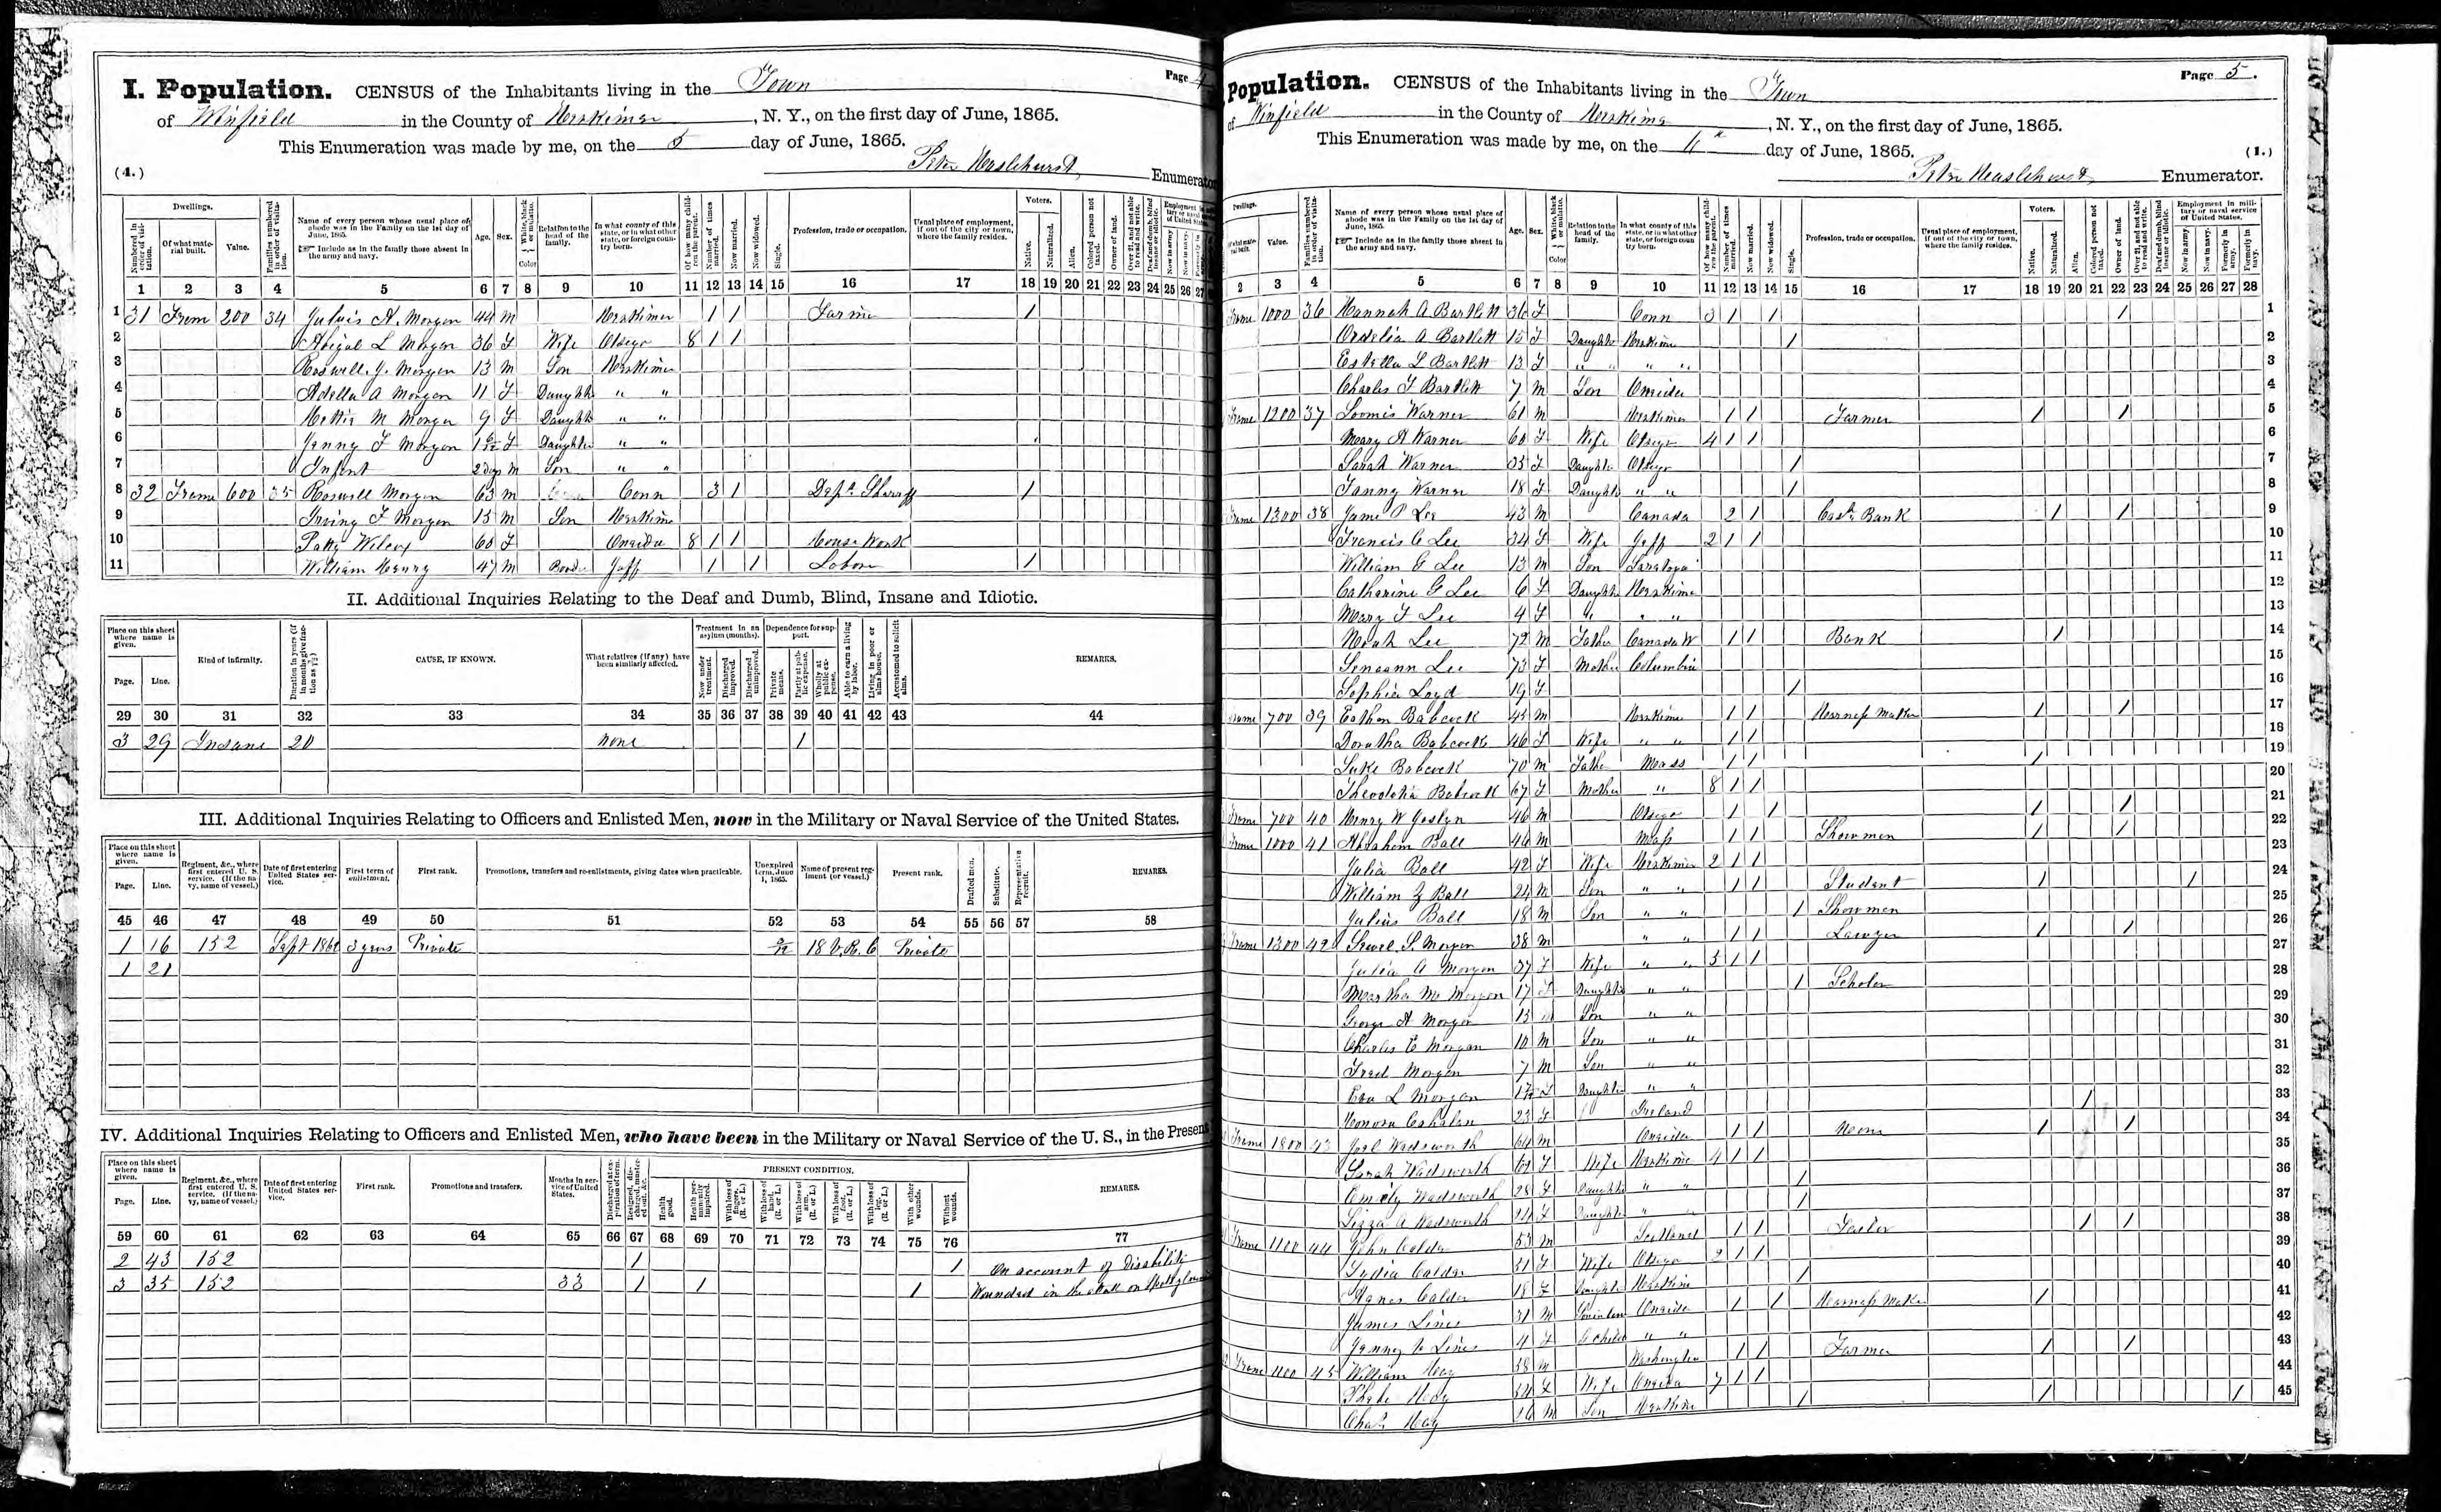 I. Population. CENSUS of the Inhabitants living in the Town Page 4
of Winfield in the County of Herkimer, N. Y., on the first day of June, 1865.
This Enumeration was made by me, on the 5 day of June, 1865.
(4.) Peter Haslehurst, Enumerator
Dwellings. Voters.
Numbered in order of visitation. Of what material built. Value. Families numbered in order of visitation. Name of every person whose usual place of abode was in the Family on the 1st day of June, 1865. Include as in the family those absent in the army and navy. Age. Sex. White, black or mulatto. Color Relation to the head of the family. In what county of this state, or in what other state, or foreign country born. Of how many children the parent. Number of times married. Now married. Now widowed. Single. Profession, trade or occupation. Usual place of employment, if out of the city or town, where the family resides. Native. Naturalized. Alien. Colored person not taxed. Owner of land. Over 21, and not able to read and write. Deaf and dumb, blind insane or idiotic. Now in army. Now in navy.
1 2 3 4 5 6 7 8 9 10 11 12 13 14 15 16 17 18 19 20 21 22 23 24 25 26 27
1 31 Frem 200 34 Juluis A. Morgen 44 M Herkimer 1 1 Farmer 1
2 Abigal L Morgen 36 F Wife Otsego 8 1 1
3 Roswell J. Morgen 13 M Son Herkimer
4 Adella A Morgen 11 F Daughter " "
5 Hettie M Morgen 9 F Daughter " "
6 Jenny F Morgen F Daughter " "
7 Infent 2 Days M Son " "
8 32 Frame 600 35 Roswell Morgen 63 M Conn 3 1 Dept. Sheraff 1
9 Irving F Morgen 15 M Son Herkimer
10 Patty Wilcox 60 F Oneida 8 1 1 House Work
11 William Henry 47 M Boarder Jeff 1 1 Labor 1
II. Additional Inquiries Relating to the Deaf and Dumb, Blind, Insane and Idiotic.
Place on this sheet where name is given. Page. Line. Kind of infirmity. Duration in years (if in months give fraction as 1/12) CAUSE, IF KNOWN. What relatives (if any) have been similarly affected. Treatment in an asylum (months). Now under treatment. Discharged improved. Discharged unimproved. Dependence for support. Private means. Partly at public expense. Wholly at public expense. Able to earn a living by labor. Living in poor or alms house. Accustomed to solicit alms. REMARKS.
29 30 31 32 33 34 35 36 37 38 39 40 41 42 43 44
3 29 Insane 20 None 1
III. Additional Inquiries Relating to Officers and Enlisted Men, now in the Military or Naval Service of the United States.
Place on this sheet where name is given. Page. Line. Regiment, &c., where first entered U. S. service. (If the navy, name of vessel.) Date of first entering United States service. First term of enlistment. First rank. Promotions, transfers and re-enlistments, giving dates when practicable. Unexpired term, June 1, 1865. Name of present regiment (or vessel.) Present rank. Drafted men. Substitute. Representative recruit. REMARKS.
45 46 47 48 49 50 51 52 53 54 55 56 57 58
1 16 152 Sept 3 years Private 18 V. R. C Private
1 21
IV. Additional Inquiries Relating to Officers and Enlisted Men, who have been in the Military or Naval Service of the U. S., in the Present
Place on this sheet where name is given. Page. Line. Regiment, &c., where first entered U. S. service. (If the navy, name of vessel.) Date of first entering United States service. First rank. Promotions and transfers. Months in service of United States. Discharged at expiration of term. Resigned, discharged, mustered out, &c. PRESENT CONDITION. Health good. Health permanently impaired. With loss of fingers. (R. or L.) With loss of hand. (R. or L.) With loss of arm. (R. or L.) With loss of foot. (R. or L.) With loss of leg. (R. or L.) With other wounds. Without wounds. REMARKS.
59 60 61 62 63 64 65 66 67 68 69 70 71 72 73 74 75 76 77
2 43 152 1 1 On account of Disability
3 35 152 33 1 1 1 Wounded in the
Population. CENSUS of the Inhabitants living in the Town Page 5.
of Winfield in the County of Herkimer, N. Y., on the first day of June, 1865.
This Enumeration was made by me, on the day of June, 1865. (1.)
Peter Haslehurst, Enumerator.
Dwellings. Voters. Employment in military or naval service of United States.
Value. Families numbered in order of visitation. Name of every person whose usual place of abode was in the Family on the 1st day of June, 1865. Include as in the family those absent in the army and navy. Age. Sex. White, black or mulatto. Color Relation to the head of the family. In what county of this state, or in what other state, or foreign country born. Of how many children the parent. Number of times married. Now married. Now widowed. Single. Profession, trade or occupation. Usual place of employment, if out of the city or town, where the family resides. Native. Naturalized. Alien. Colored person not taxed. Owner of land. Over 21, and not able to read and write. Deaf and dumb, blind insane or idiotic. Now in army. Now in navy. Formerly in army. Formerly in navy.
2 3 4 5 6 7 8 9 10 11 12 13 14 15 16 17 18 19 20 21 22 23 24 25 26 27 28
Frame 1000 36 Hannah A Bartlett 36 F Conn 3 1 1 1 1
Ordelia A Bartlett 15 F Daughter Herkimer 1 2
Estella L Bartlett 13 F " " " " 3
Charles F Bartlett 7 M Son Oneida 4
Frame 1200 37 Loomis Warner 61 M Herkimer 1 1 Farmer 1 1 5
Mary A Warner 60 F Wife Otsego 4 1 1 6
Sarah Warner 35 F Daughter Otsego 1 7
Fanny Warner 18 F Daughter " " 1 8
Frame 1300 38 Jame P Lee 43 M Canada 2 1 Cash Bank 1 1 9
Francis C Lee 34 F Wife Jeff 2 1 1 10
William G Lee 13 M Son Saratoga 11
Catharine G Lee 6 F Daughter Herkimer 12
Mary F Lee 4 F " " " 13
Noah Lee 72 M Father Canada W 1 1 Bank 1 14
Lee 73 F Mother Columbia 15
Sophia Loyd 19 F 1 16
Frame 700 39 Eathon Babcock 45 M Herkimer 1 1 Harness Maker 1 1 17
Doratha Babcock 46 F Wife " " 1 1 18
Luke Babcock 70 M Father Mass 1 1 1 19
Babcock 67 F Mother " 8 1 1 20
Frame 700 40 Henry W Joslyn 46 M Otsego 1 1 1 1 21
Frame 1000 41 Abraham Ball 46 M Mass 1 1 Showmen 1 1 22
Julia Ball 42 F Wife Herkimer 2 1 1 23
William Z Ball 24 M Son " " 1 1 Student 1 1 24
Julius Ball 18 M Son " " 1 Showmen 25
Frame 1300 42 Sewel S. Morgen 38 M " " 1 1 Lawyer 1 1 26
Julia A Morgen 37 F Wife " " 5 1 1 27
Martha M Morgen 17 F Daughter " " 1 Scholar 28
George A Morgen 13 M Son " " 29
Charles E Morgan 10 M Son " " 30
Fred Morgen 7 M Son " " 31
Eva L Morgen F Daughter " " 32
Honora Cahalan 23 F Ireland 1 33
Frame 1800 43 Joel Wadsworth 64 M Oneida 1 1 None 1 1 34
Sarah Wadsworth 61 F Wife Herkimer 4 1 1 35
Emily Wadsworth 28 F Daughter " " 1 36
Lizza A Wadsworth 24 F Daughter " " 1 37
Frame 1100 44 John Calder 53 M Scotland 1 1 Tailor 1 1 38
Lydia Calder 51 F Wife Otsego 2 1 1 39
Agnes Calder 18 F Daughter Herkimer 1 40
James Lines 31 M Son in law Oneida 1 1 Harness Maker 1 41
Fanny C Lines 4 F G child " " 42
Frame 1100 45 William Hay 38 M Washington 1 1 Farmer 1 1 43
Phebe Hay F Wife Oneida 7 1 1 44
Chas. Hay 16 M Son Herkimer 1 1 1 45